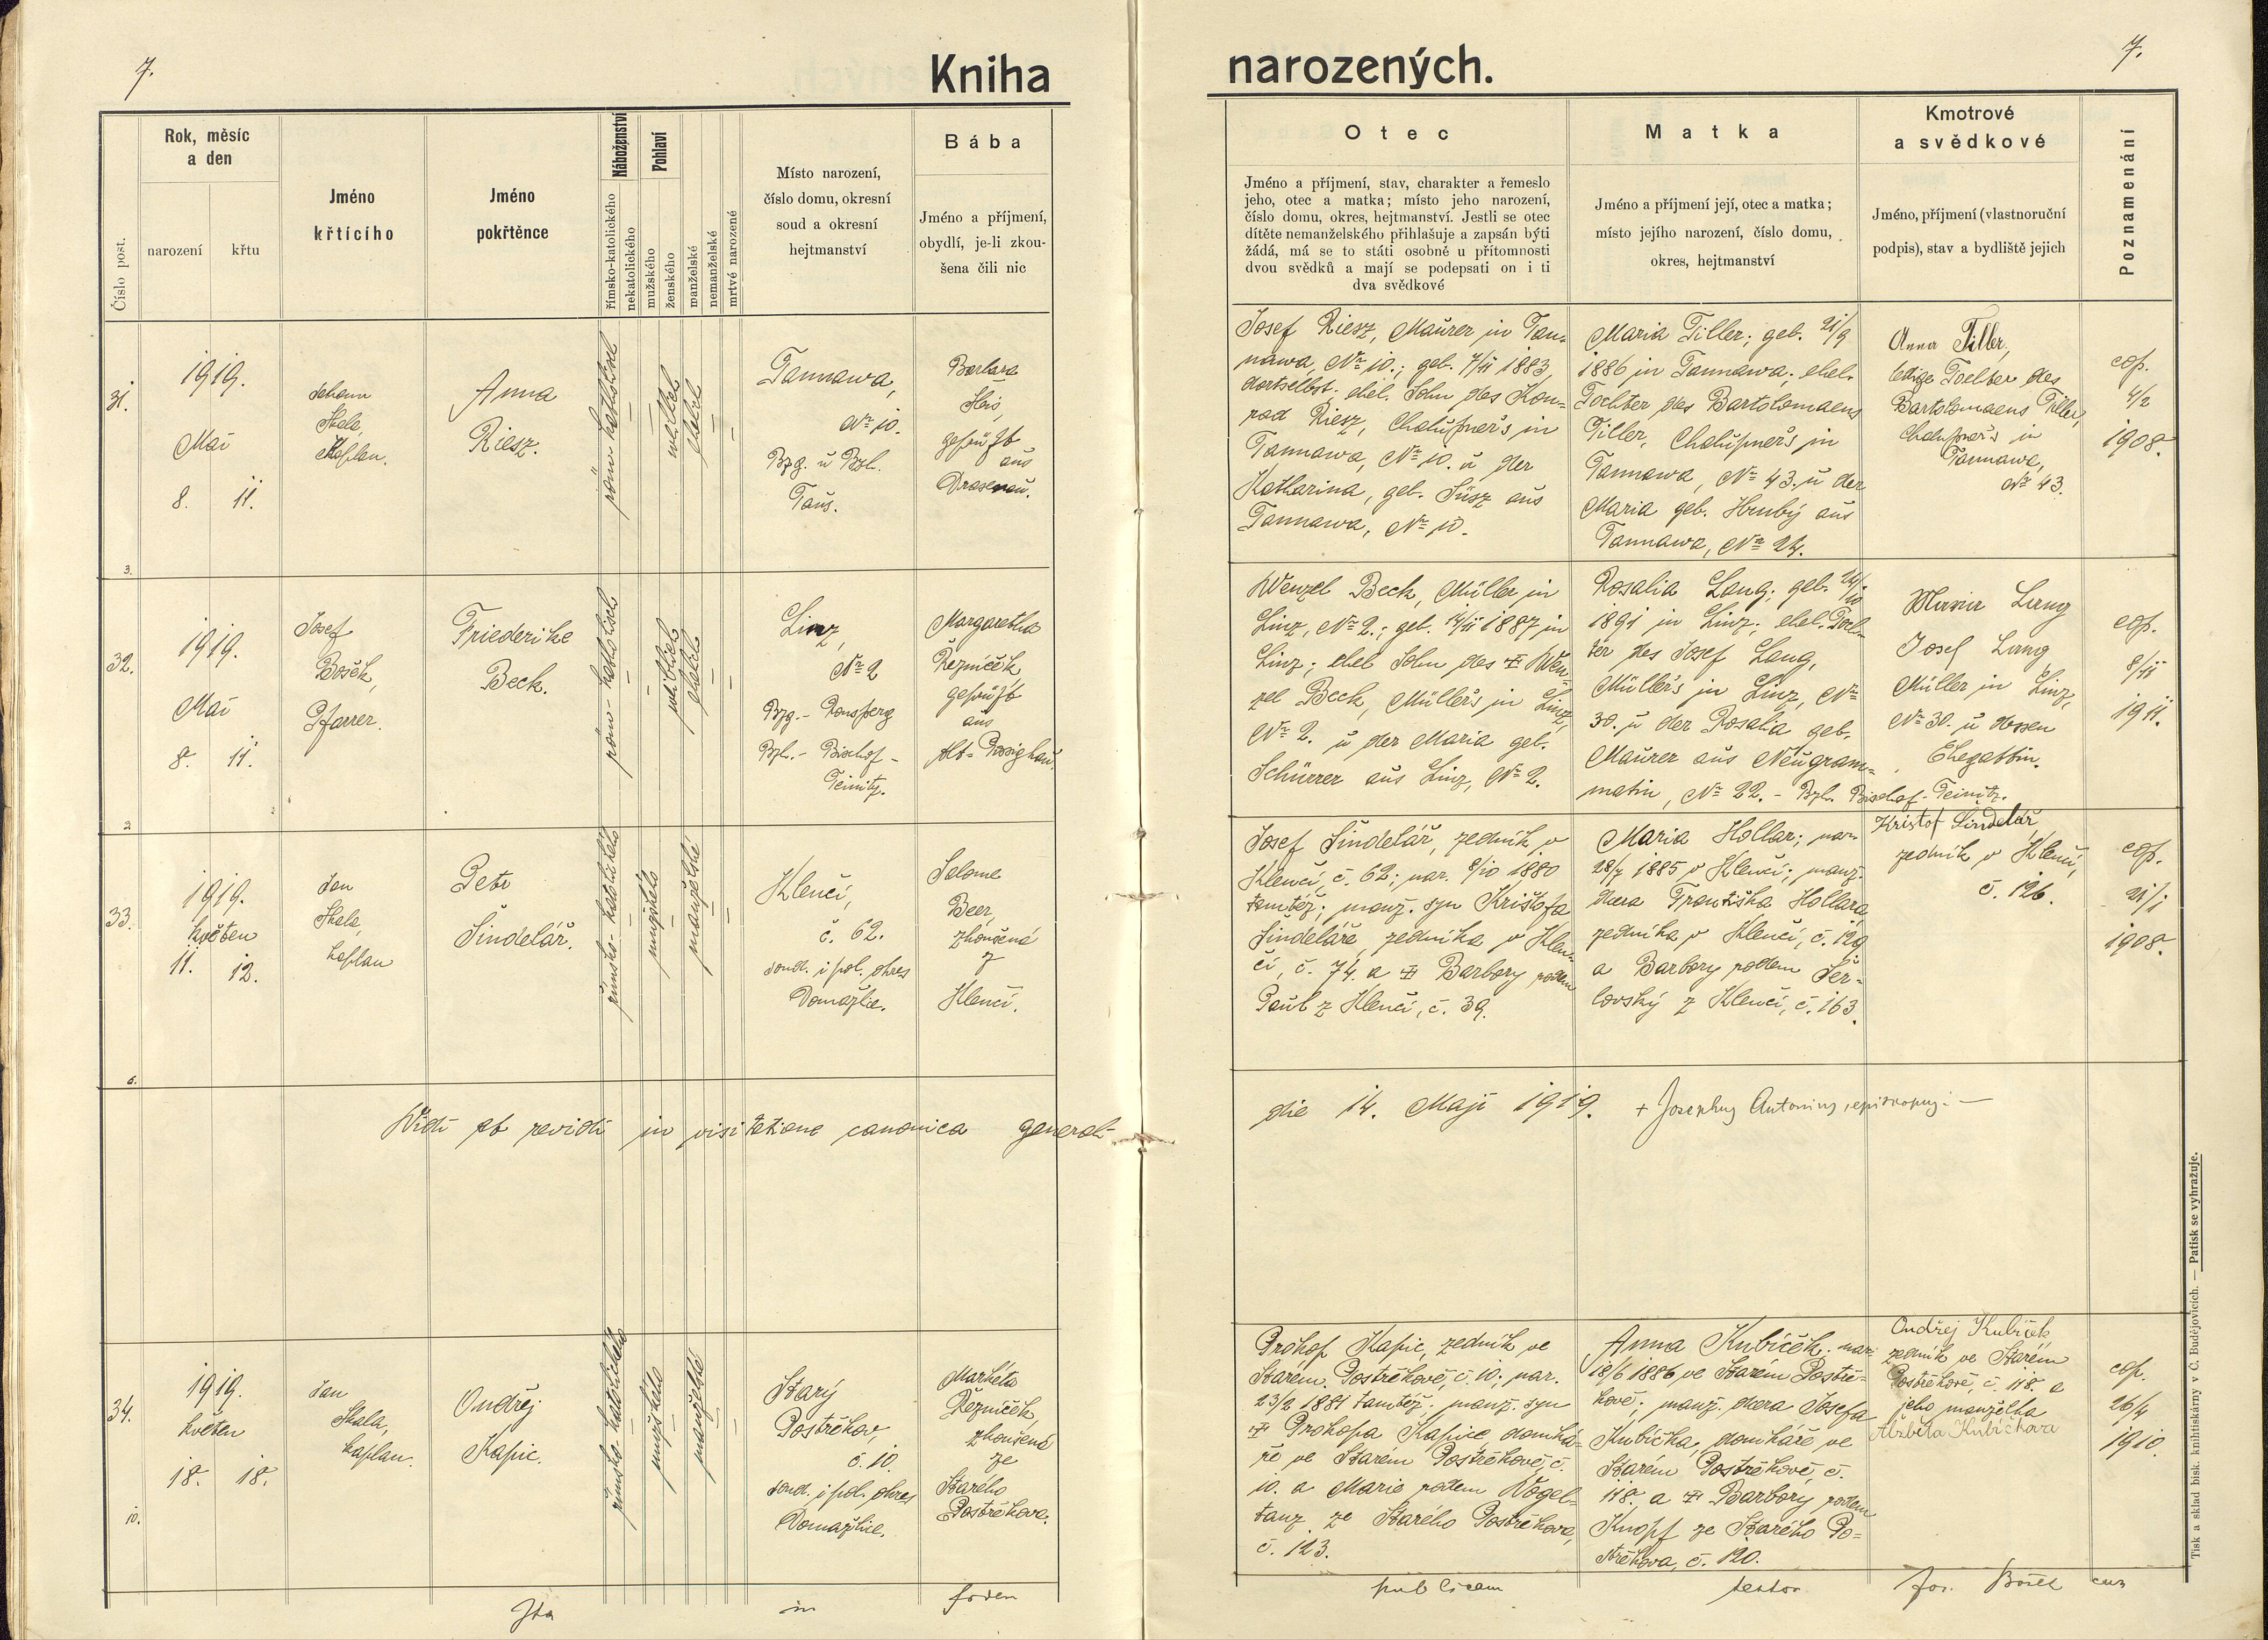 7.
Kniha
narozených.
7.
Číslo post.
Rok, měsíc
a den
narození
křtu
Jméno
křtícího
Jméno
pokřtěnce
Náboženství
římsko-katolického
nekatolického
Pohlaví
mužského
ženského
manželské
nemanželské
mrtvě narozené
Místo narození,
číslo domu, okresní
soud a okresní
hejtmanství
Bába
Jméno a příjmení,
obydlí, je-li zkou-
šena čili nic
Otec
Jméno a příjmení, stav, charakter a řemeslo
jeho, otec a matka; místo jeho narození,
číslo domu, okres, hejtmanství. Jestli se otec
dítěte nemanželského přihlašuje a zapsán býti
žádá, má se to státi osobně u přítomnosti
dvou svědků a mají se podepsati on i ti
dva svědkové
Matka
Jméno a příjmení její, otec a matka;
místo jejího narození, číslo domu,
okres, hejtmanství
Kmotrové
a svědkové
Jméno, příjmení (vlastnoruční
podpis), stav a bydliště jejich
Poznamenání
31.
1919.
Mai
8. 11.
Johann
Skala,
Kaplan.
Anna
Riesz.
röm. katholisch
weiblich
ehelich
Tannawa,
Nr 10.
Bzg. u Bzl.
Taus.
Barbara
geprüft
aus
Drasenau.
Josef Riesz, Maurer in Tan-
nawa, Nr 10.; geb. 7/11 1883
dortselbst; ehel. Sohn des Kon-
rad Riesz, Chalupners in
Tannawa, Nr 10. u der
Katharina, geb. Süsz aus
Tannawa, Nr 10.
Maria Tiller; geb. 21/9
1886 in Tannawa; ehel.
Tochter des Bartolomaeus
Tiller, Chalupners in
Tannawa, Nr 43. u der
Maria geb. Hruby aus
Tannawa, Nr 24.
Anna Tiller,
ledige Tochter des
Bartolomaeus Tiller,
Chalupners in
Tannawa,
Nr 43.
cop.
4/2
1908.
3.
32.
1919.
Mai
8. 11.
Josef
Bošek,
Pfarrer.
Friederike
Beck.
röm-katholisch
weiblich
ehelich
Linz,
Nr 2
Bzg.- Ronsperg
Bzl.- Bischof-
Teinitz.
Margaretha
Řezníček
geprüft
aus
Alt-Possighau.
Wenzel Beck, Müller in
Linz, Nr 2.; geb. 14/11 1887 in
Linz; ehel Sohn des ‡ Wen-
zel Beck, Müllers in Linz,
Nr 2. u der Maria geb.
Schürrer aus Linz, Nr 2.
Rosalia Lang; geb. 24/10
1891 in Linz; ehel. Toch-
ter des Josef Lang,
Müllers in Linz, Nr
30. u der Rosalia geb.
Maurer aus Neugram-
matin, Nr 22. - Bzl. Bischof-Teinitz.
Maria Lang
Josef Lang
Müller in Linz,
Nr 30. u dessen
Ehegattin.
cop.
8/11
1911.
2.
33.
1919.
květen
11. 12.
Jan
Skala,
kaplan
Petr
Šindelář.
římsko-katolického
mužského
manželské
Klenčí,
č. 62.
soud. i pol. okres
Domažlice.
Salome
Beer,
zkoušená
z
Klenčí.
Josef Šindelář, zedník v
Klenčí, č. 62; nar. 8/10 1880
tamtéž; manž. syn Krištofa
Šindeláře, zedníka v Klen-
čí, č. 74. a ‡ Barbory rodem
Paul z Klenčí, č. 39.
Maria Hollar; nar.
28/7 1885 v Klenčí; manž.
dcera Františka Hollara,
zedníka v Klenčí, č. 129
a Barbory rodem Šer-
lovský z Klenčí, č. 163.
Krištof Šindelář
zedník v Klenčí,
č. 126.
cop.
21/1
1908.
6.
Vidi et revidi in visitatione canonica generali
die 14. Maji 1919. + Josephus Antonius, episcopus. —
34.
1919.
květen
18. 18.
Jan
Skala,
kaplan.
Ondřej
Kapic.
římsko-katolického
mužského
manželské
Starý
Postřekov,
č. 10.
soud. i pol. okres
Domažlice.
Markéta
Řezníček,
zkoušená
ze
Starého
Postřekova.
Prokop Kapic, zedník ve
Starém Postřekově, č. 10; nar.
23/2 1881 tamtéž; manž. syn
‡ Prokopa Kapice domká-
ře ve Starém Postřekově, č.
10. a Marie rodem Vogel-
tanz ze Starého Postřekova,
č. 123.
Anna Kubíček; nar.
18/6 1886 ve Starém Postře-
kově; manž. dcera Josefa
Kubíčka, domkáře ve
Starém Postřekově, č.
118. a ‡ Barbory rodem
Knopf ze Starého Po-
střekova, č. 120.
Ondřej Kubíček
zedník ve Starém
Postřekově, č. 118. a
jeho manželka
Alžběta Kubíčková
cop.
26/4
1910.
10.
Ita in fidem publicam testor Jos. Bošek cur
Tisk a sklad bisk. knihtiskárny v Č. Budějovicích. — Patisk se vyhražuje.